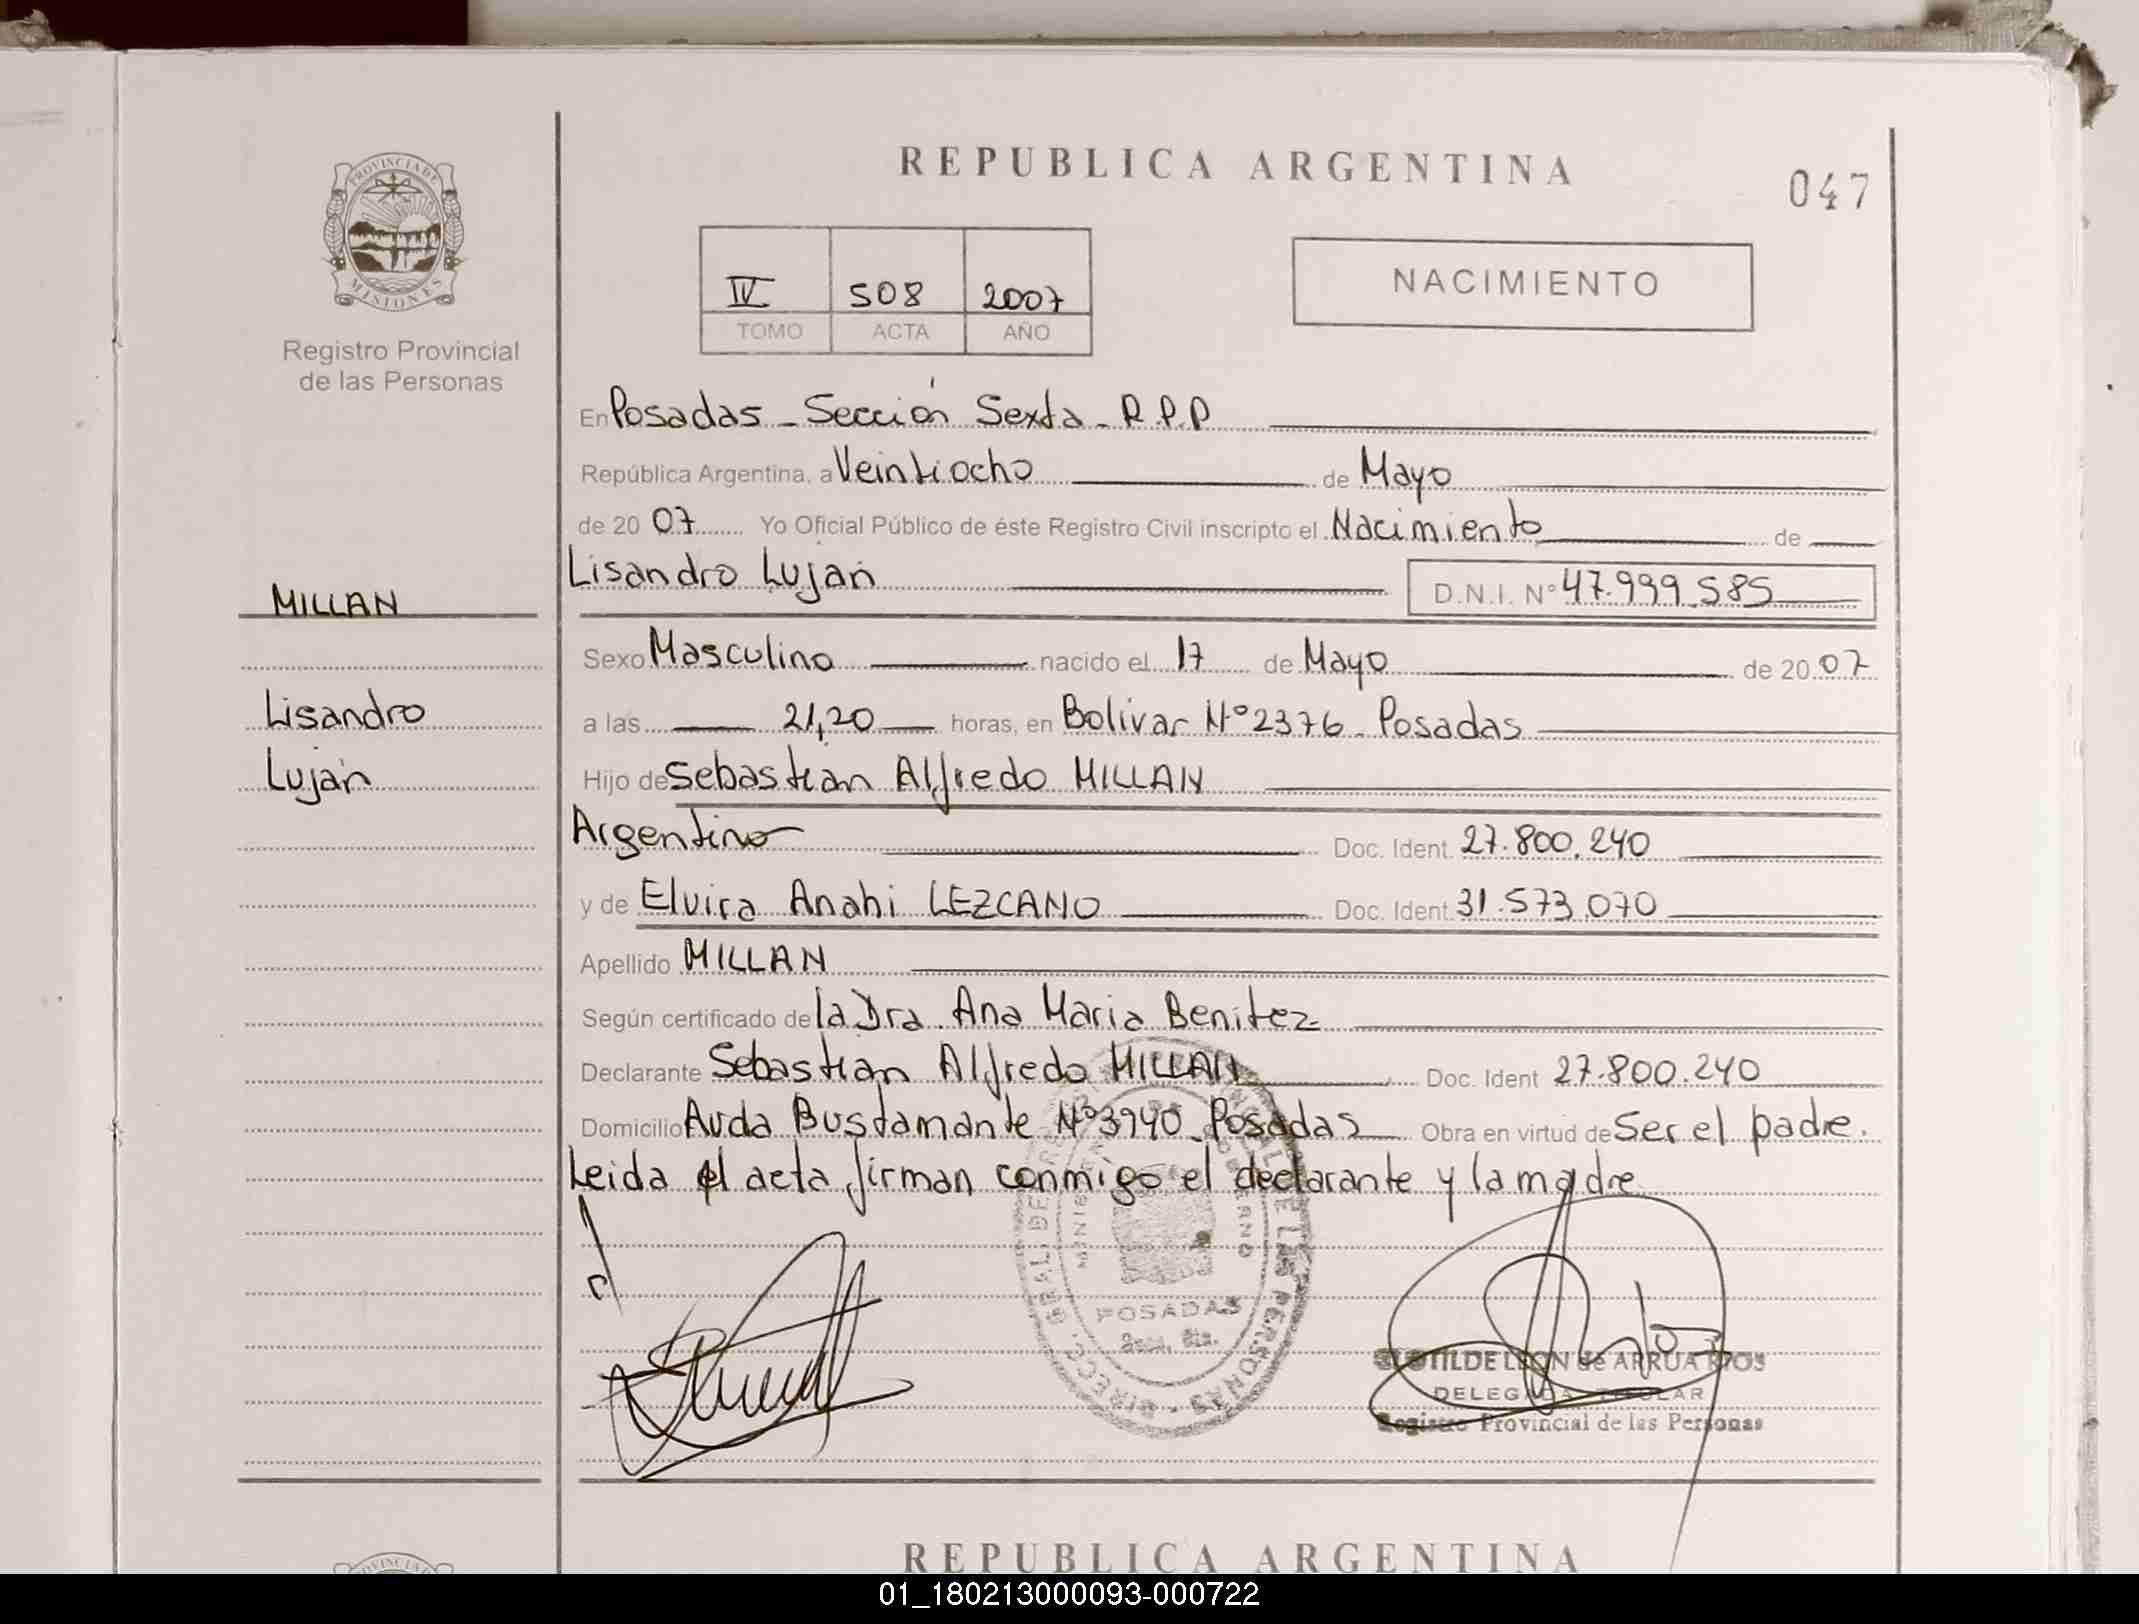 PROVINCIA DE
MISIONES
Registro Provincial
de las Personas
REPUBLICA ARGENTINA
047
IV 508 2007
TOMO ACTA AÑO
NACIMIENTO
En Posadas - Sección Sexta - R.P.P
República Argentina, a Veintiocho de Mayo
de 20 07 Yo Oficial Público de éste Registro Civil inscripto el Nacimiento de
Lisandro Luján D.N.I. Nº 47.999.585
MILLAN
Sexo Masculino nacido el 17 de Mayo de 20 07
Lisandro
a las 21,20 horas, en Bolivar Nº 2376 - Posadas
Luján
Hijo de Sebastian Alfredo MILLAN
Argentino Doc. Ident. 27.800.240
y de Elvira Anahi LEZCANO Doc. Ident. 31.573.070
Apellido MILLAN
Según certificado de la Dra. Ana Maria Benitez
Declarante Sebastian Alfredo MILLAN Doc. Ident 27.800.240
Domicilio Avda Bustamante Nº 3940 - Posadas Obra en virtud de Ser el padre.
Leida el acta, firman conmigo el declarante y la madre
POSADAS
CLOTILDE LEON de ARRUA RIOS
DELEGADA TITULAR
Registro Provincial de las Personas
REPUBLICA ARGENTINA
01_180213000093-000722